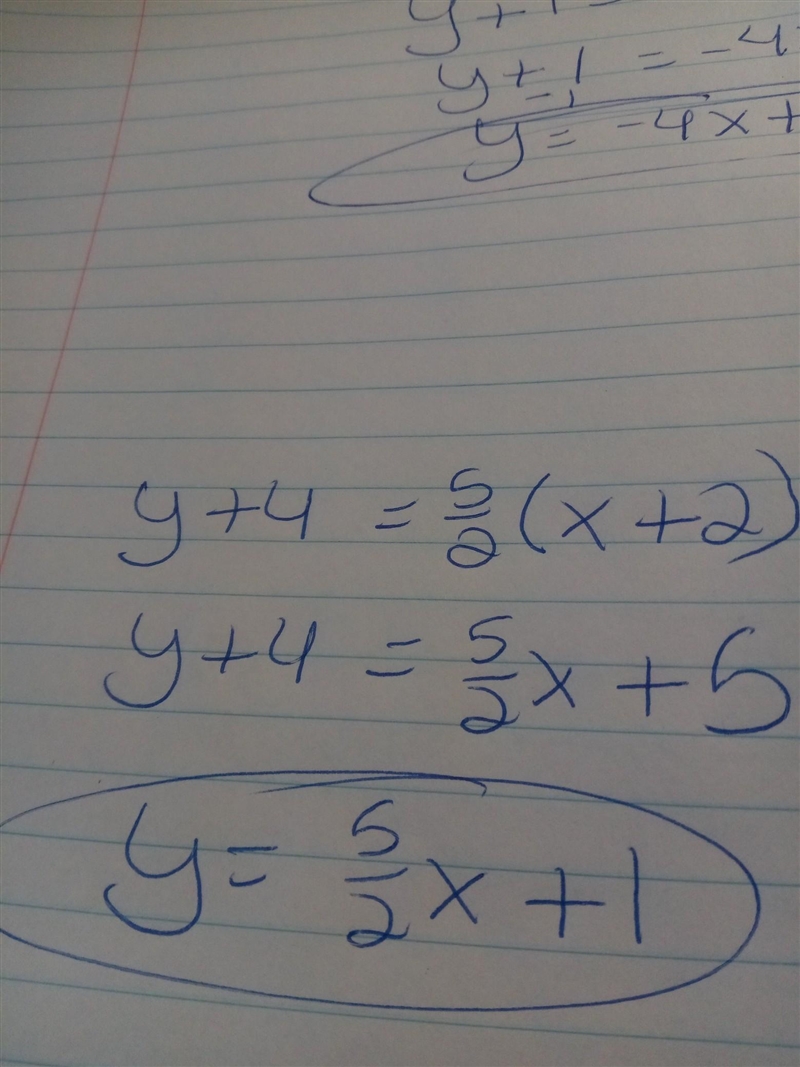 y + 1
y + 1 = -4
-1
y = -4x +
y + 4 = 5/2 (x + 2)
y + 4 = 5/2 x + 5
y = 5/2 x + 1